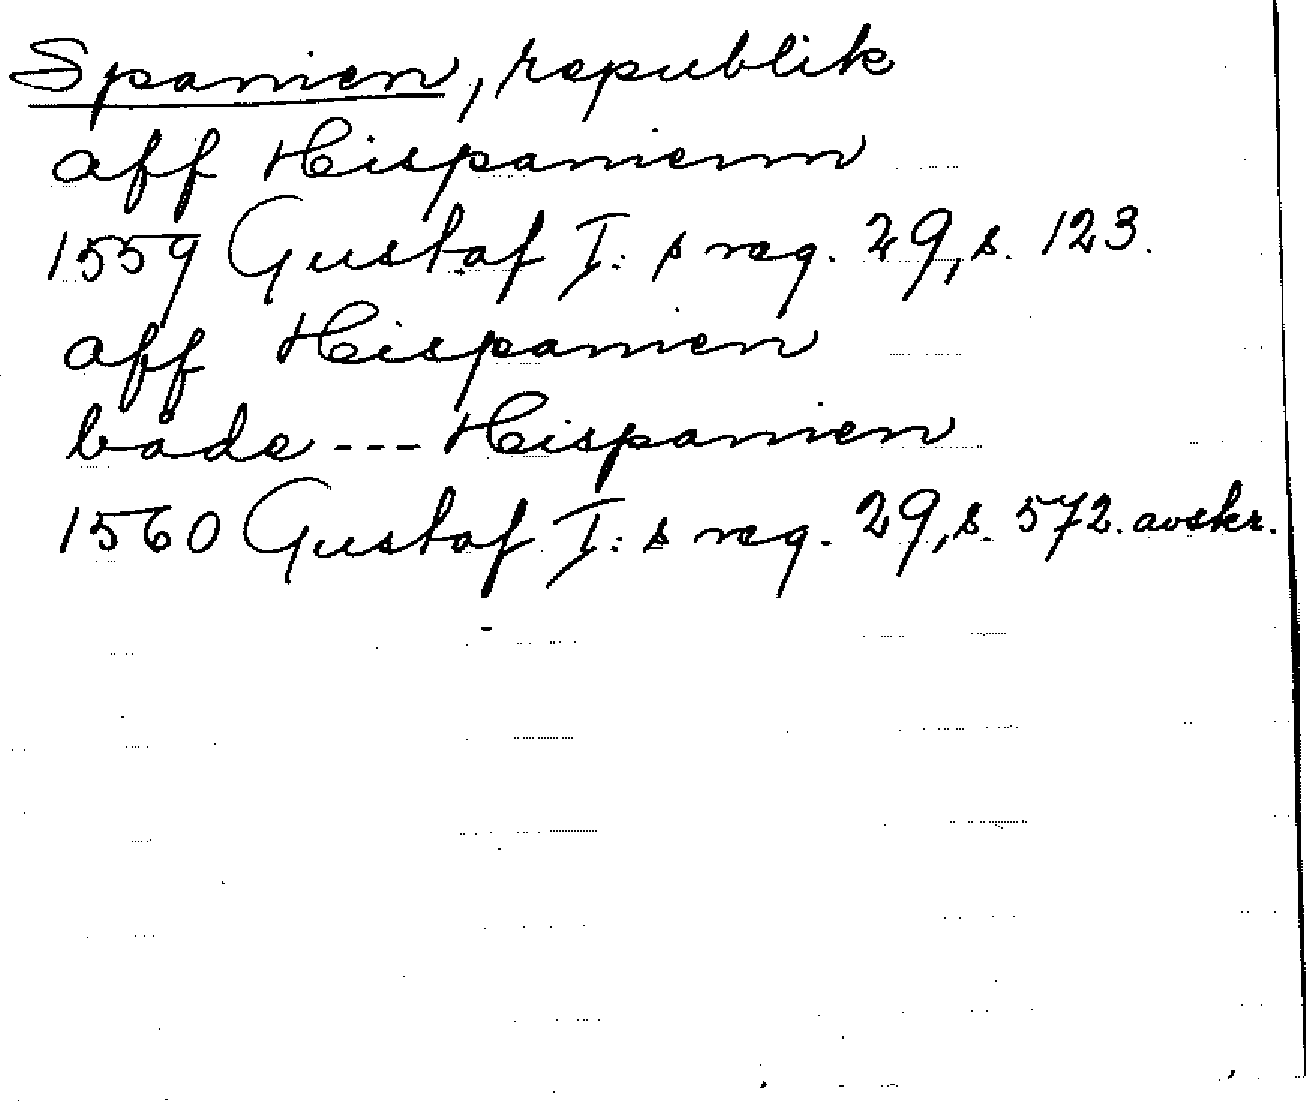 Spanien, republik
aff Hispanienn
1559 Gustaf I: s reg. 29, s. 123.
aff Hispanien
både --- Hispanien
1560 Gustaf I: s reg. 29, s. 572. avskr.